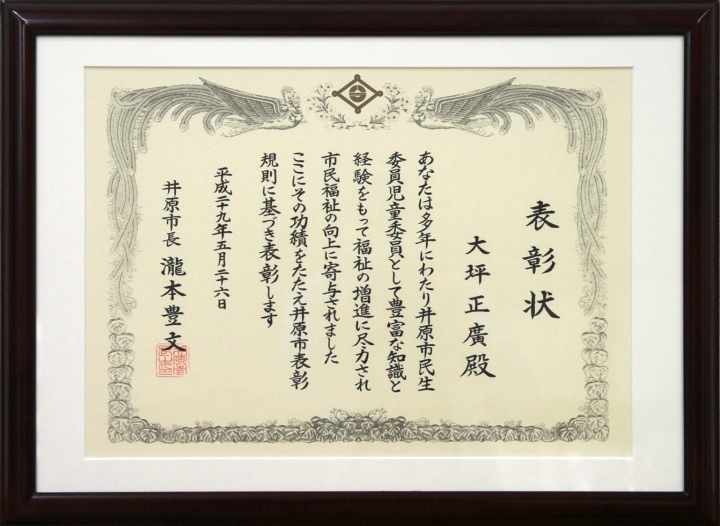 表彰状
大坪正廣殿
あなたは多年にわたり井原市民生
委員児童委員として豊富な知識と
経験をもって福祉の増進に尽力され
市民福祉の向上に寄与されました
ここにその功績をたたえ井原市表彰
規則に基づき表彰します
平成二十九年五月二十六日
井原市長 瀧本豊文